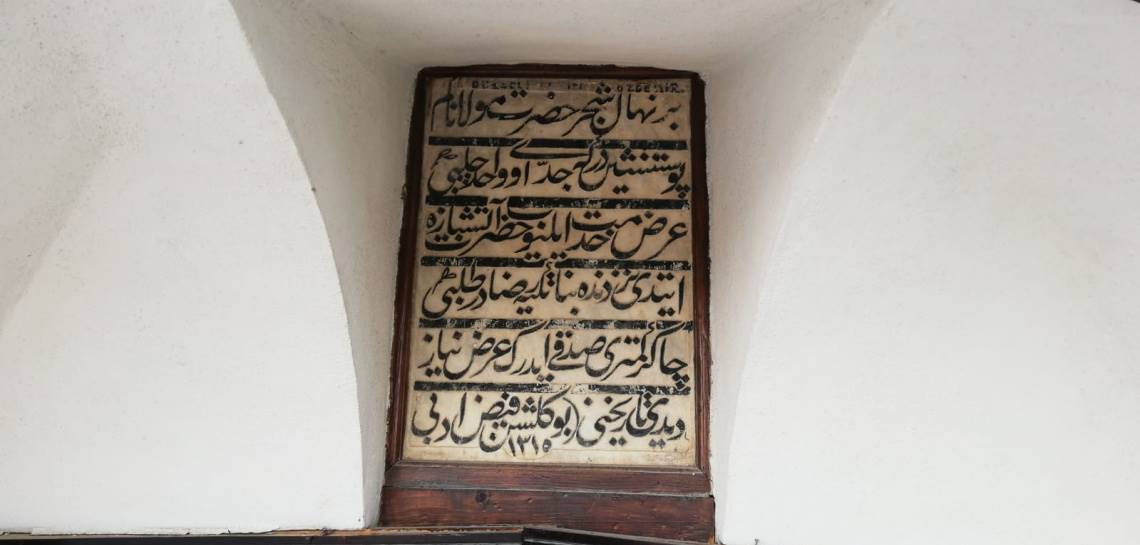 بر نهال شجر حضرت مولانام
پوستنشین درگه جدی او واحد چلبی
عرض خدمت ایلیوب حضرت آتشبازه
ایتدی نزدنده بنا تکیه رضا در طلبی
چاکر کمتری صدقی ایدرک عرض نیاز
دیدی تاریخنی (بو گلشن فیض ادبی
١٣١٥